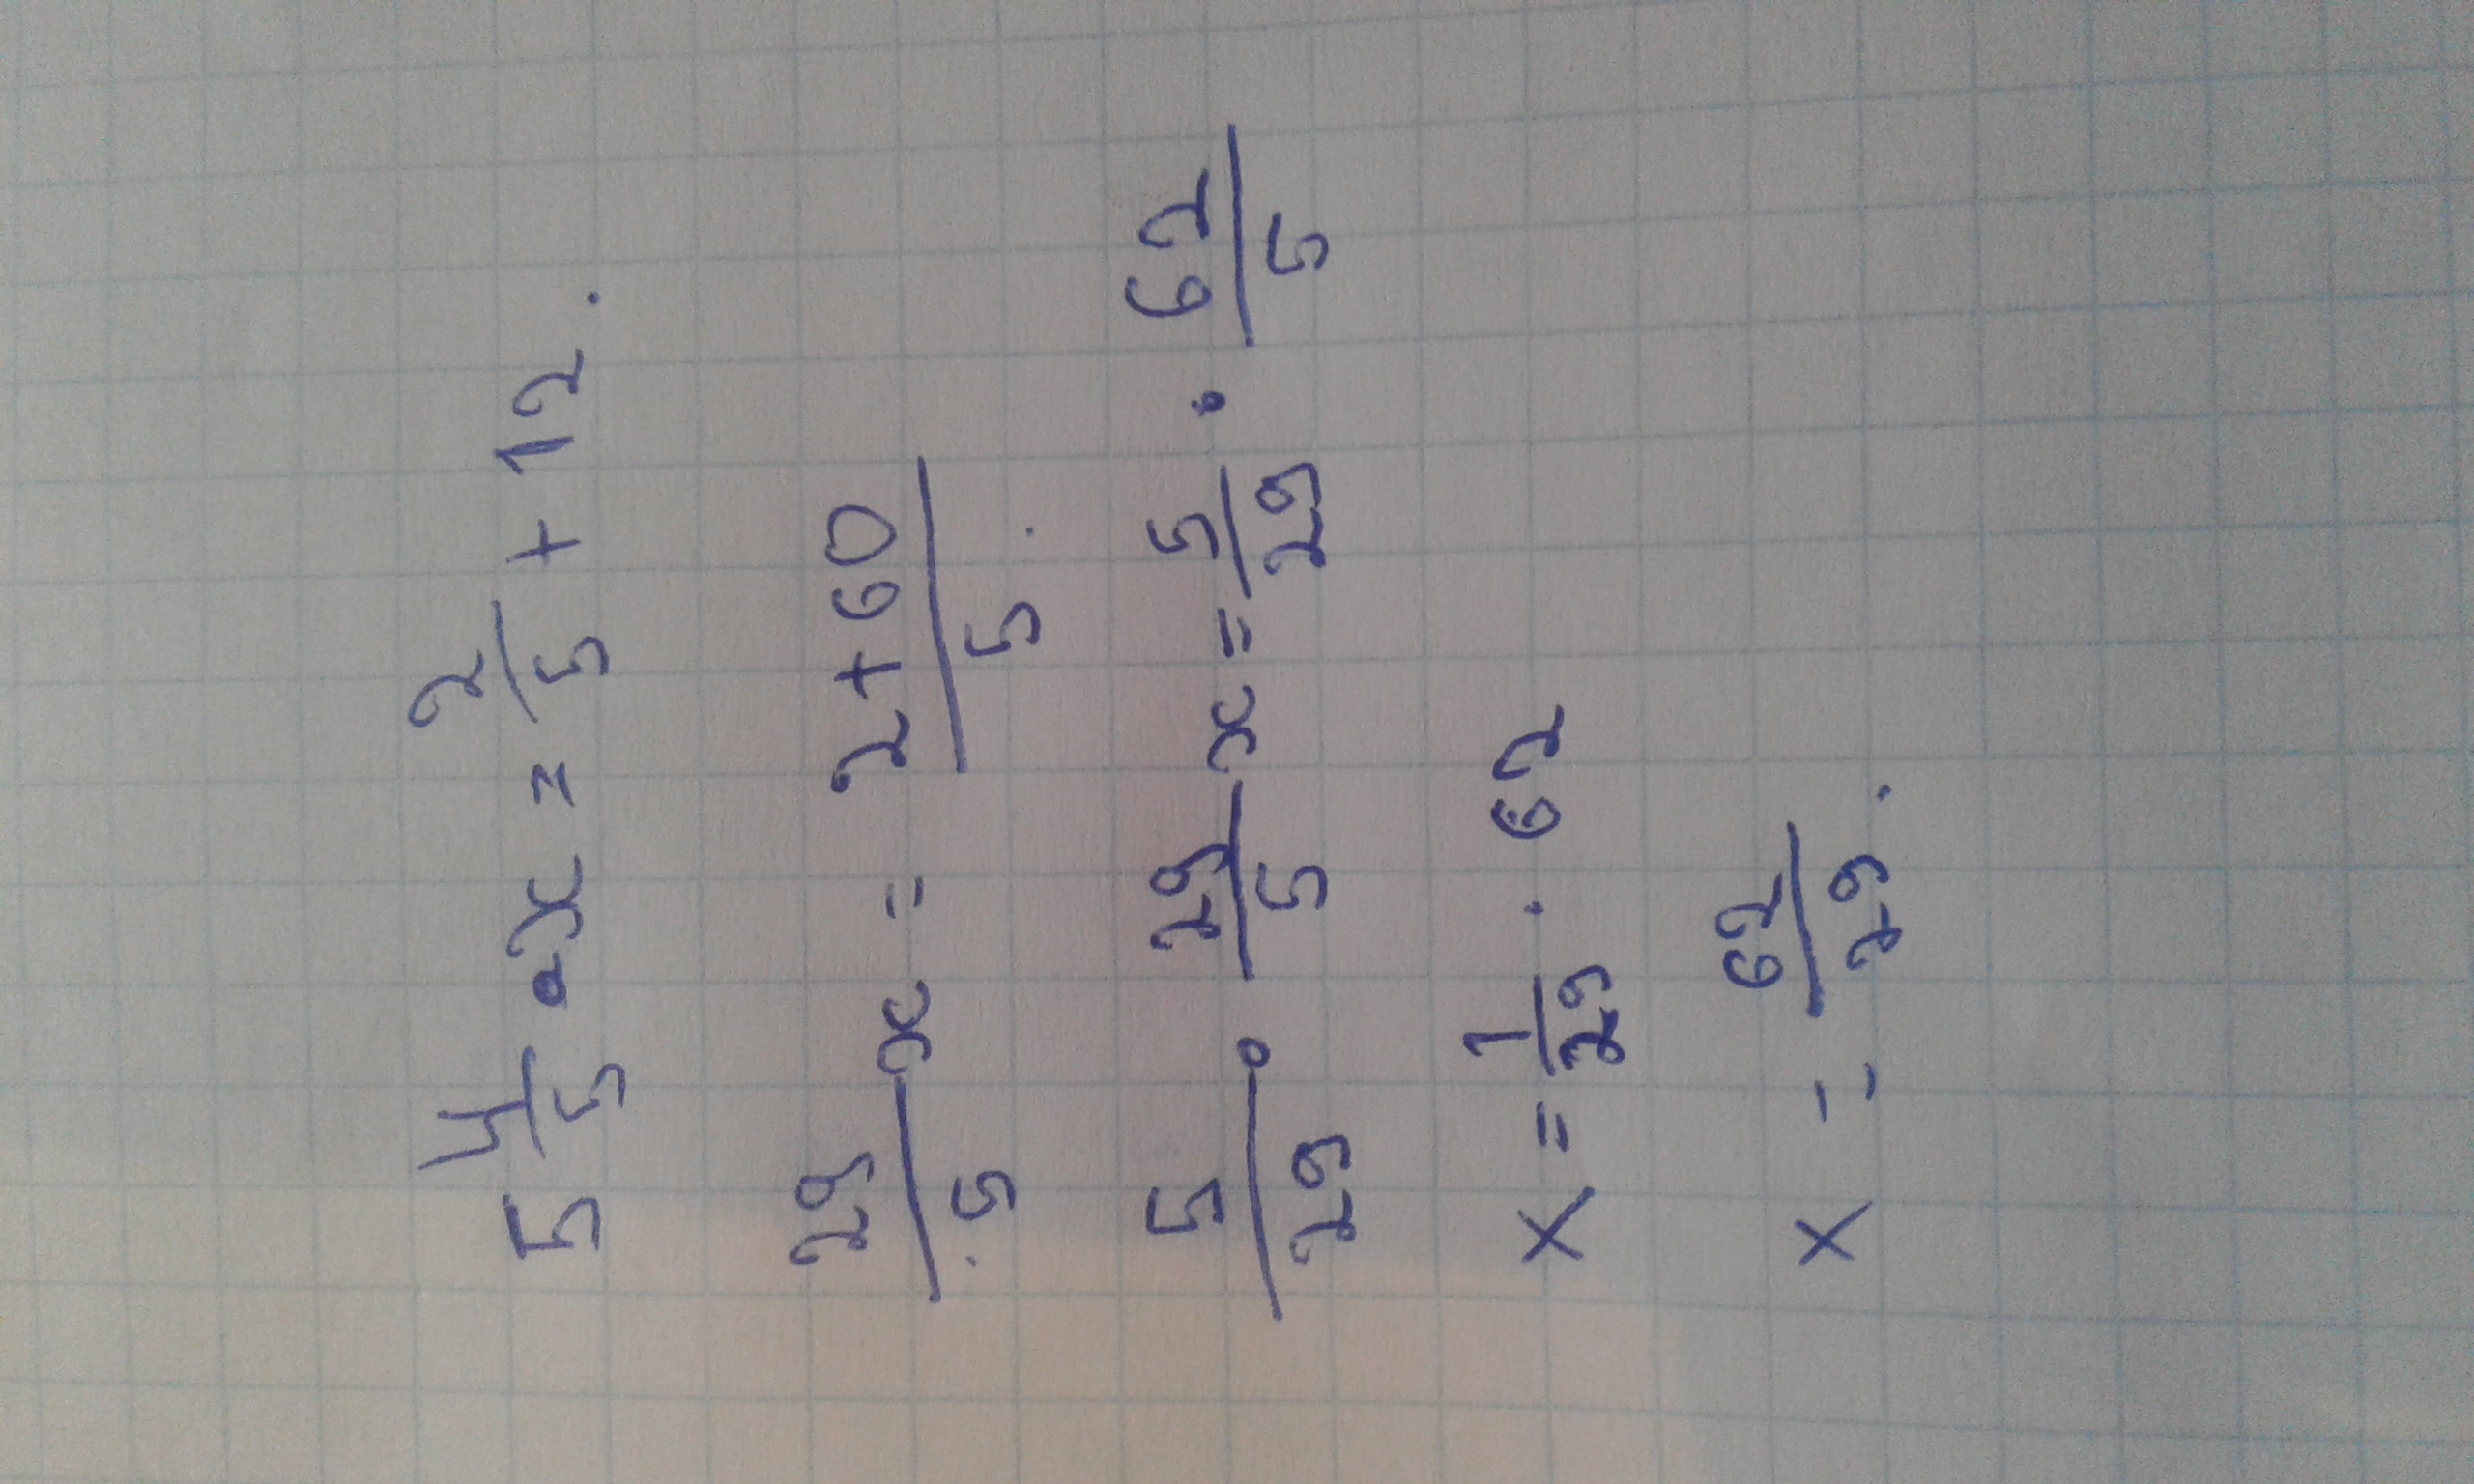 5 4/5 · x = 2/5 + 12.
29/5 x = 2+60/5.
5/29 · 29/5 x = 5/29 · 62/5
x = 1/29 · 62
x = 62/29.